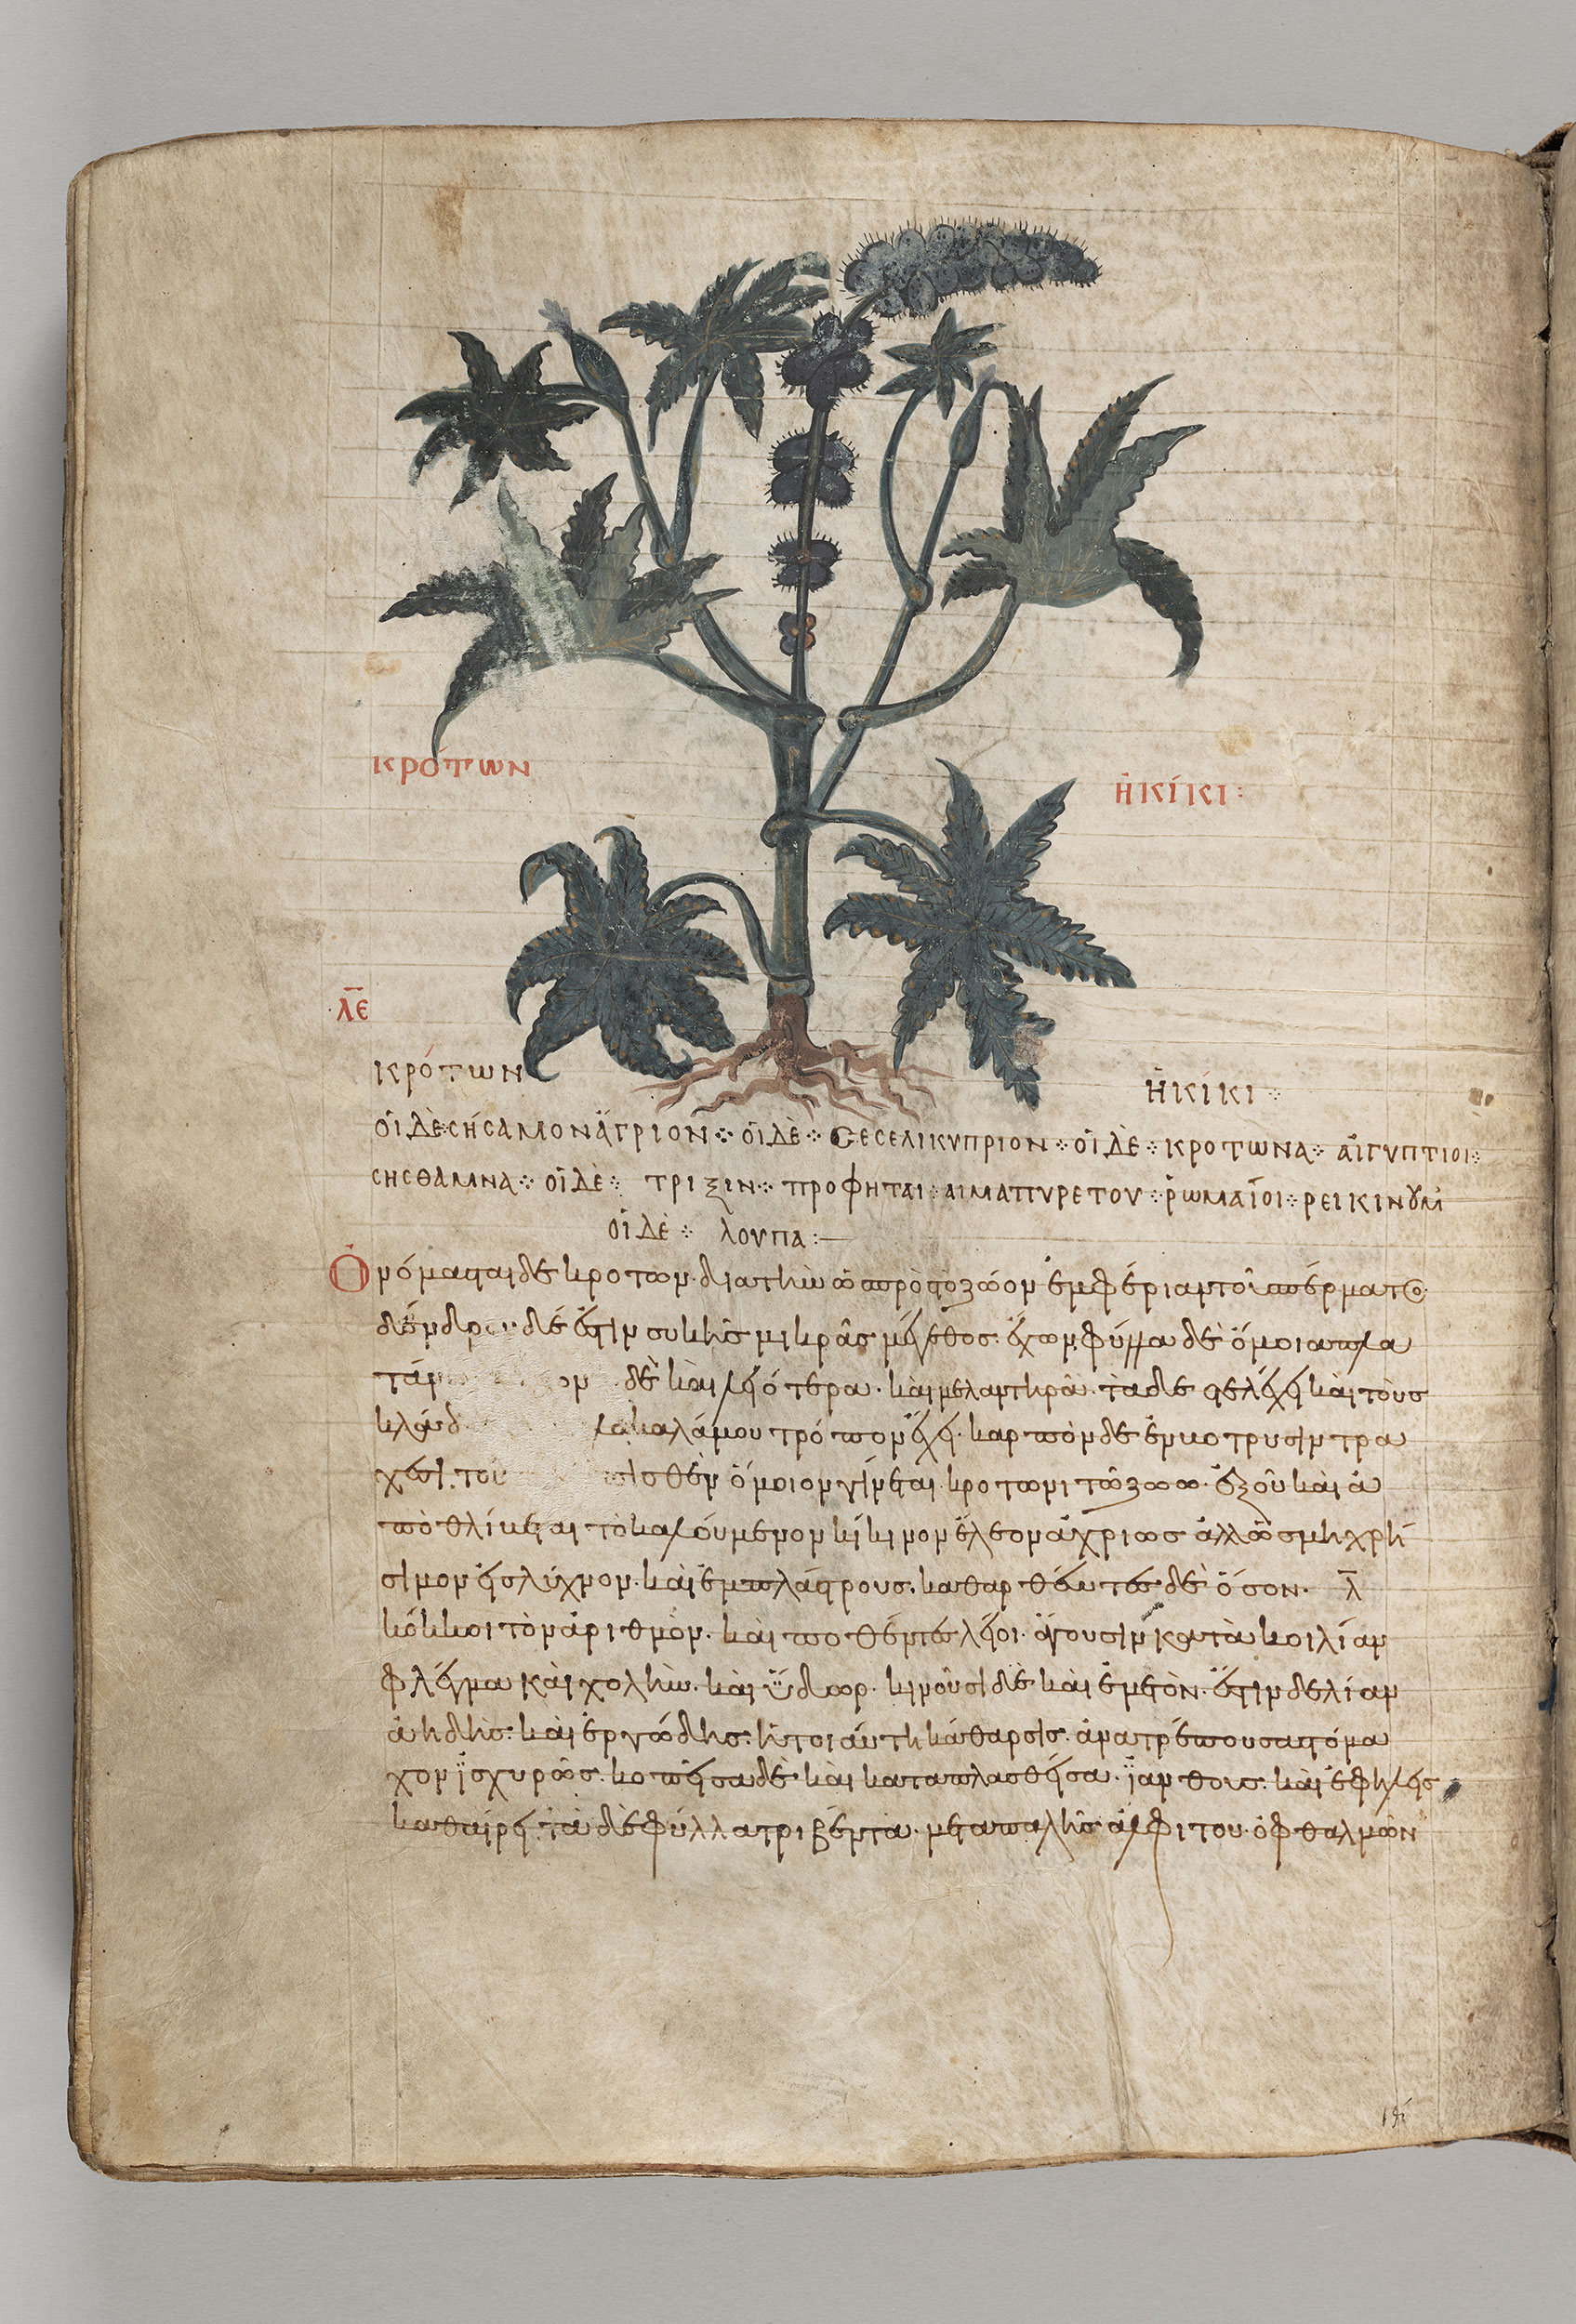 κρότων
ἢ κίκι:
λε
κρότων
ἢ κίκι ⁘
οἱ δὲ σήσαμον ἄγριον ⁘ οἱ δὲ ⁘ σεσελι κυπριον ⁘ οἱ δὲ ⁘ κροτωνα ⁘ αἰγυπτιοι ⁘
σησθαμνα ⁘ οἱ δὲ ⁘ τριξιν ⁘ προφηται ⁘ αιμα πυρετου ⁘ ῥωμαῖοι ⁘ ρεικινουμ
οἱ δὲ ⁘ λουπα :—
Ὀνόμασται δε κροτων· δια τὴν πρὸς τὸ ζῶον ἐμφέριαν τοῦ σπέρματος·
δένδρον δέ ἐστιν συκῆς μικρᾶς μέγεθος· ἔχων φύλλα δὲ ὅμοια πλα
δὲ καὶ λειότερα· καὶ μελαντηρὰ· τὰ δε στελέχη καὶ τοὺς
κλάδ καλάμου τρόπον ἔχει· καρπὸν δε ἐν κοτρυσιν τρα
χέσι· τον σθὲν ὅμοιον γίνεται κροτωνι τῶ ζωω· ἐξ οὗ καὶ ἀ
ποθλίβεται τὸ καλούμενον κίκινον ἔλεον ἄχριως ἀλλῶς μὴ χρή
σιμον εἰς λύχνον· καὶ ἐμπλάστρους· καθαρθέντες δὲ ὅσον· λ
κόκκοι τὸν ἀριθμὸν· καὶ ποθέντες λεῖοι· ἄγουσιν κατὰ κοιλίαν
φλέγμα καὶ χολὴν· καὶ ὕδωρ· κινοῦσι δὲ καὶ ἐμετὸν· ἔστιν δε λίαν
ἀηδὴς· καὶ ἐργώδης· ἡ τοιάυτη κάθαρσις· ἀνατρέπουσα στόμα
χον ἰσχυρῶς· κοπεῖσα δὲ καὶ καταπλασθεῖσα· ἰάνθους· καὶ ἐφήλεις
καθαίρει· τὰ δὲ φύλλα τριβέντα· μετα παλὴς ἀλφίτου· ὀφθαλμῶν